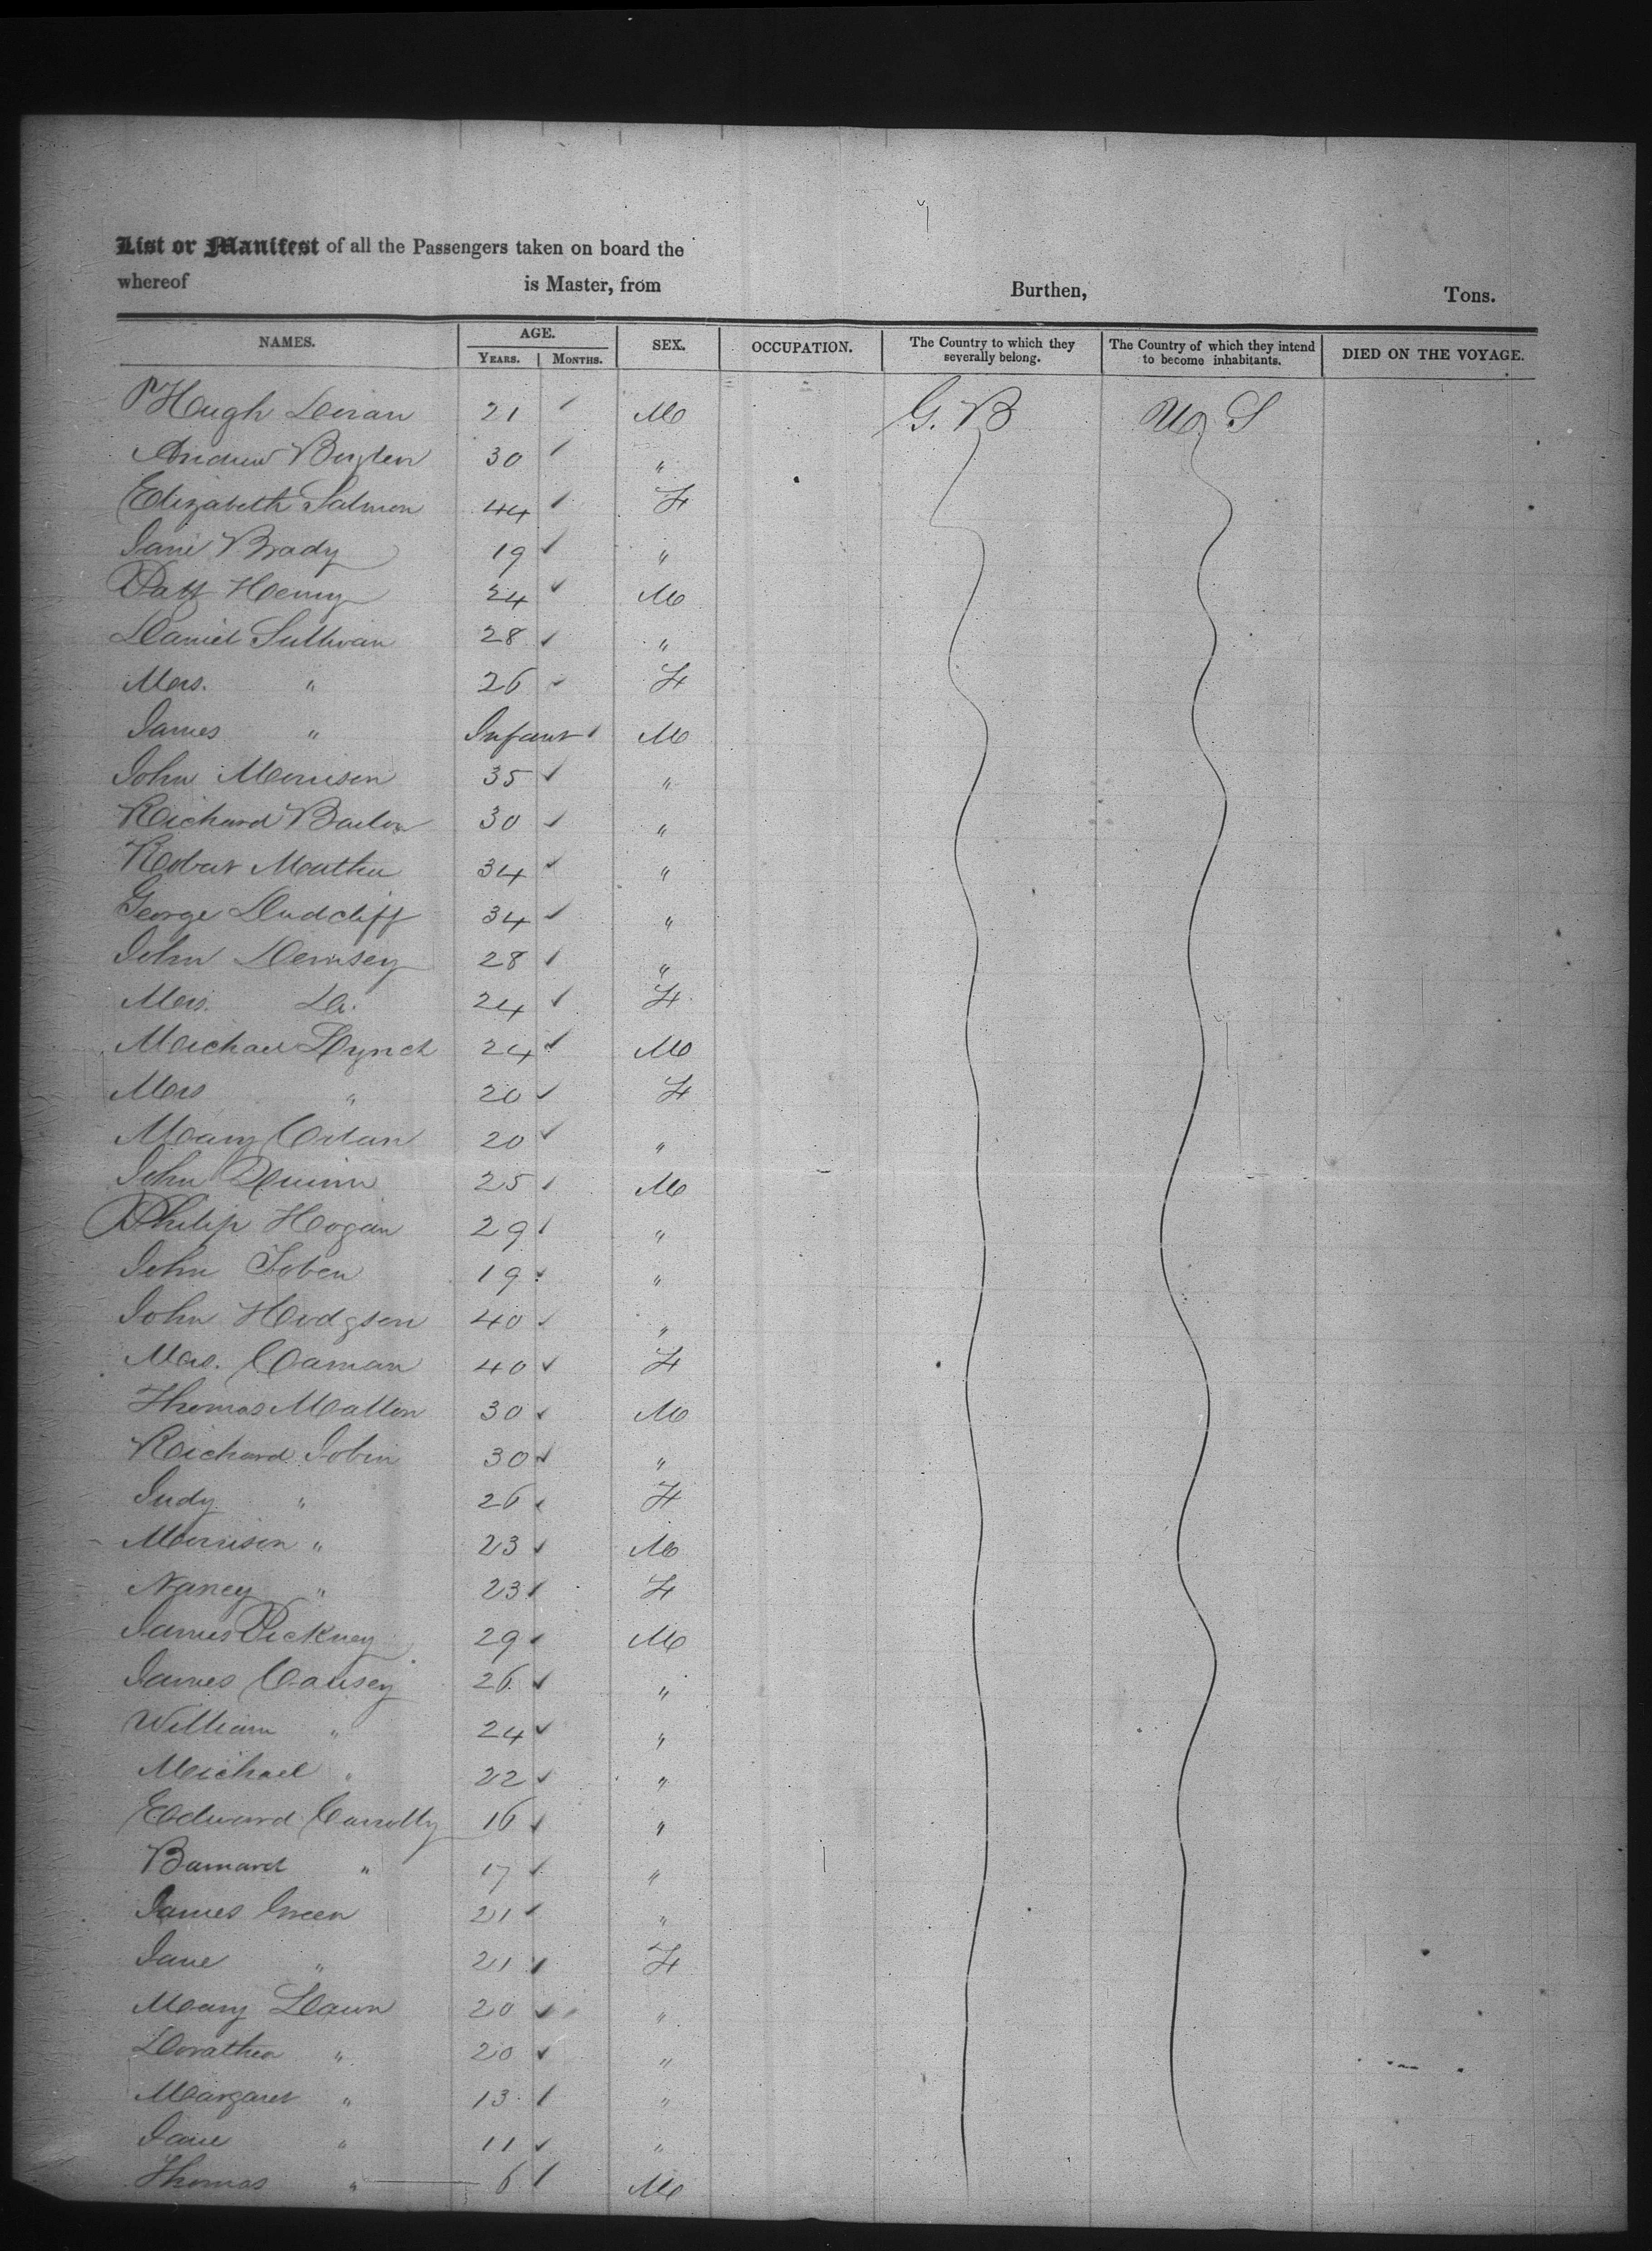 List or Manifest of all the Passengers taken on board the
whereof is Master, from Burthen, Tons.
NAMES. AGE. SEX. OCCUPATION. The Country to which they severally belong. The Country of which they intend to become inhabitants. DIED ON THE VOYAGE.
YEARS. MONTHS.
Hugh Doran 21 M G. B U S
Andrew 30 "
Elizabeth Salmon 44 F
Jane Brady 19 "
Patt Henry 24 M
Daniel Sullivan 28 "
Mrs. " 26 F
James " Infant M
John Morrison 35 "
Richard 30 "
Robert 34 "
George Dudcliff 34 "
John Demsey 28 "
Mrs. Do. 24 F
Michael Lynch 24 M
Mrs " 20 F
Mary 20 "
John Quinn 25 M
Philip Hogan 29 "
John 19 "
John Hodgson 40 "
Mrs. Caman 40 F
Thomas Mallon 30 M
Richard Tobin 30 "
Judy " 26 F
Morrison " 23 M
Nancy " 23 F
James Pickney 29 M
James 26 "
William " 24 "
Michael " 22 "
Edward Connolly 16 "
Barnard " 17 "
James Green 21 "
Jane " 21 F
Mary Dawn 20 "
Dorathea " 20 "
Margaret " 13 "
Jane " 11 "
Thomas " 6 M